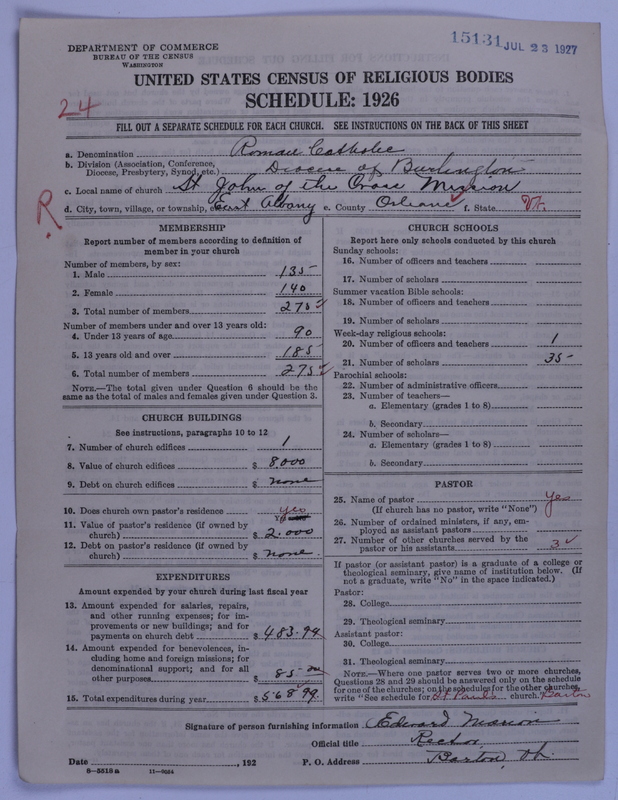 15131 JUL 23 1927
DEPARTMENT OF COMMERCE
BUREAU OF THE CENSUS
WASHINGTON
UNITED STATES CENSUS OF RELIGIOUS BODIES
SCHEDULE: 1926
24
FILL OUT A SEPARATE SCHEDULE FOR EACH CHURCH. SEE INSTRUCTIONS ON THE BACK OF THIS SHEET
a. Denomination Roman Catholic
b. Division (Association, Conference, Diocese, Presbytery, Synod, etc.) Diocese of Burlington
c. Local name of church St John of the Cross Mission
R.
d. City, town, village, or township, East Albany e. County Orleans f. State Vt.
MEMBERSHIP
Report number of members according to definition of
member in your church
Number of members, by sex:
1. Male 135
2. Female 140
3. Total number of members 275
Number of members under and over 13 years old:
4. Under 13 years of age 90
5. 13 years old and over 185
6. Total number of members 275
NOTE.—The total given under Question 6 should be the
same as the total of males and females given under Question 3.
CHURCH BUILDINGS
See instructions, paragraphs 10 to 12
7. Number of church edifices 1
8. Value of church edifices $ 8,000
9. Debt on church edifices $ none
10. Does church own pastor's residence yes
11. Value of pastor's residence (if owned by
church) $ 2,000
12. Debt on pastor's residence (if owned by
church) $ none.
EXPENDITURES
Amount expended by your church during last fiscal year
13. Amount expended for salaries, repairs,
and other running expenses; for im-
provements or new buildings; and for
payments on church debt $ 483.94
14. Amount expended for benevolences, in-
cluding home and foreign missions; for
denominational support; and for all
other purposes $ 85
15. Total expenditures during year $ 568.99
CHURCH SCHOOLS
Report here only schools conducted by this church
Sunday schools:
16. Number of officers and teachers
17. Number of scholars
Summer vacation Bible schools:
18. Number of officers and teachers
19. Number of scholars
Week-day religious schools:
20. Number of officers and teachers 1
21. Number of scholars 35
Parochial schools:
22. Number of administrative officers
23. Number of teachers—
a. Elementary (grades 1 to 8)
b. Secondary
24. Number of scholars—
a. Elementary (grades 1 to 8)
b. Secondary
PASTOR
25. Name of pastor Yes
(If church has no pastor, write "None")
26. Number of ordained ministers, if any, em-
ployed as assistant pastors
27. Number of other churches served by the
pastor or his assistants 3
If pastor (or assistant pastor) is a graduate of a college or
theological seminary, give name of institution below. (If
not a graduate, write "No" in the space indicated.)
Pastor:
28. College
29. Theological seminary
Assistant pastor:
30. College
31. Theological seminary
NOTE.—Where one pastor serves two or more churches,
Questions 28 and 29 should be answered only on the schedule
for one of the churches; on the schedules for the other churches,
write "See schedule for St Pauls church. Barton
Signature of person furnishing information Edward Marion
Official title Rector
Date , 192 P. O. Address Barton, Vt.
8-5518 a 11-9654